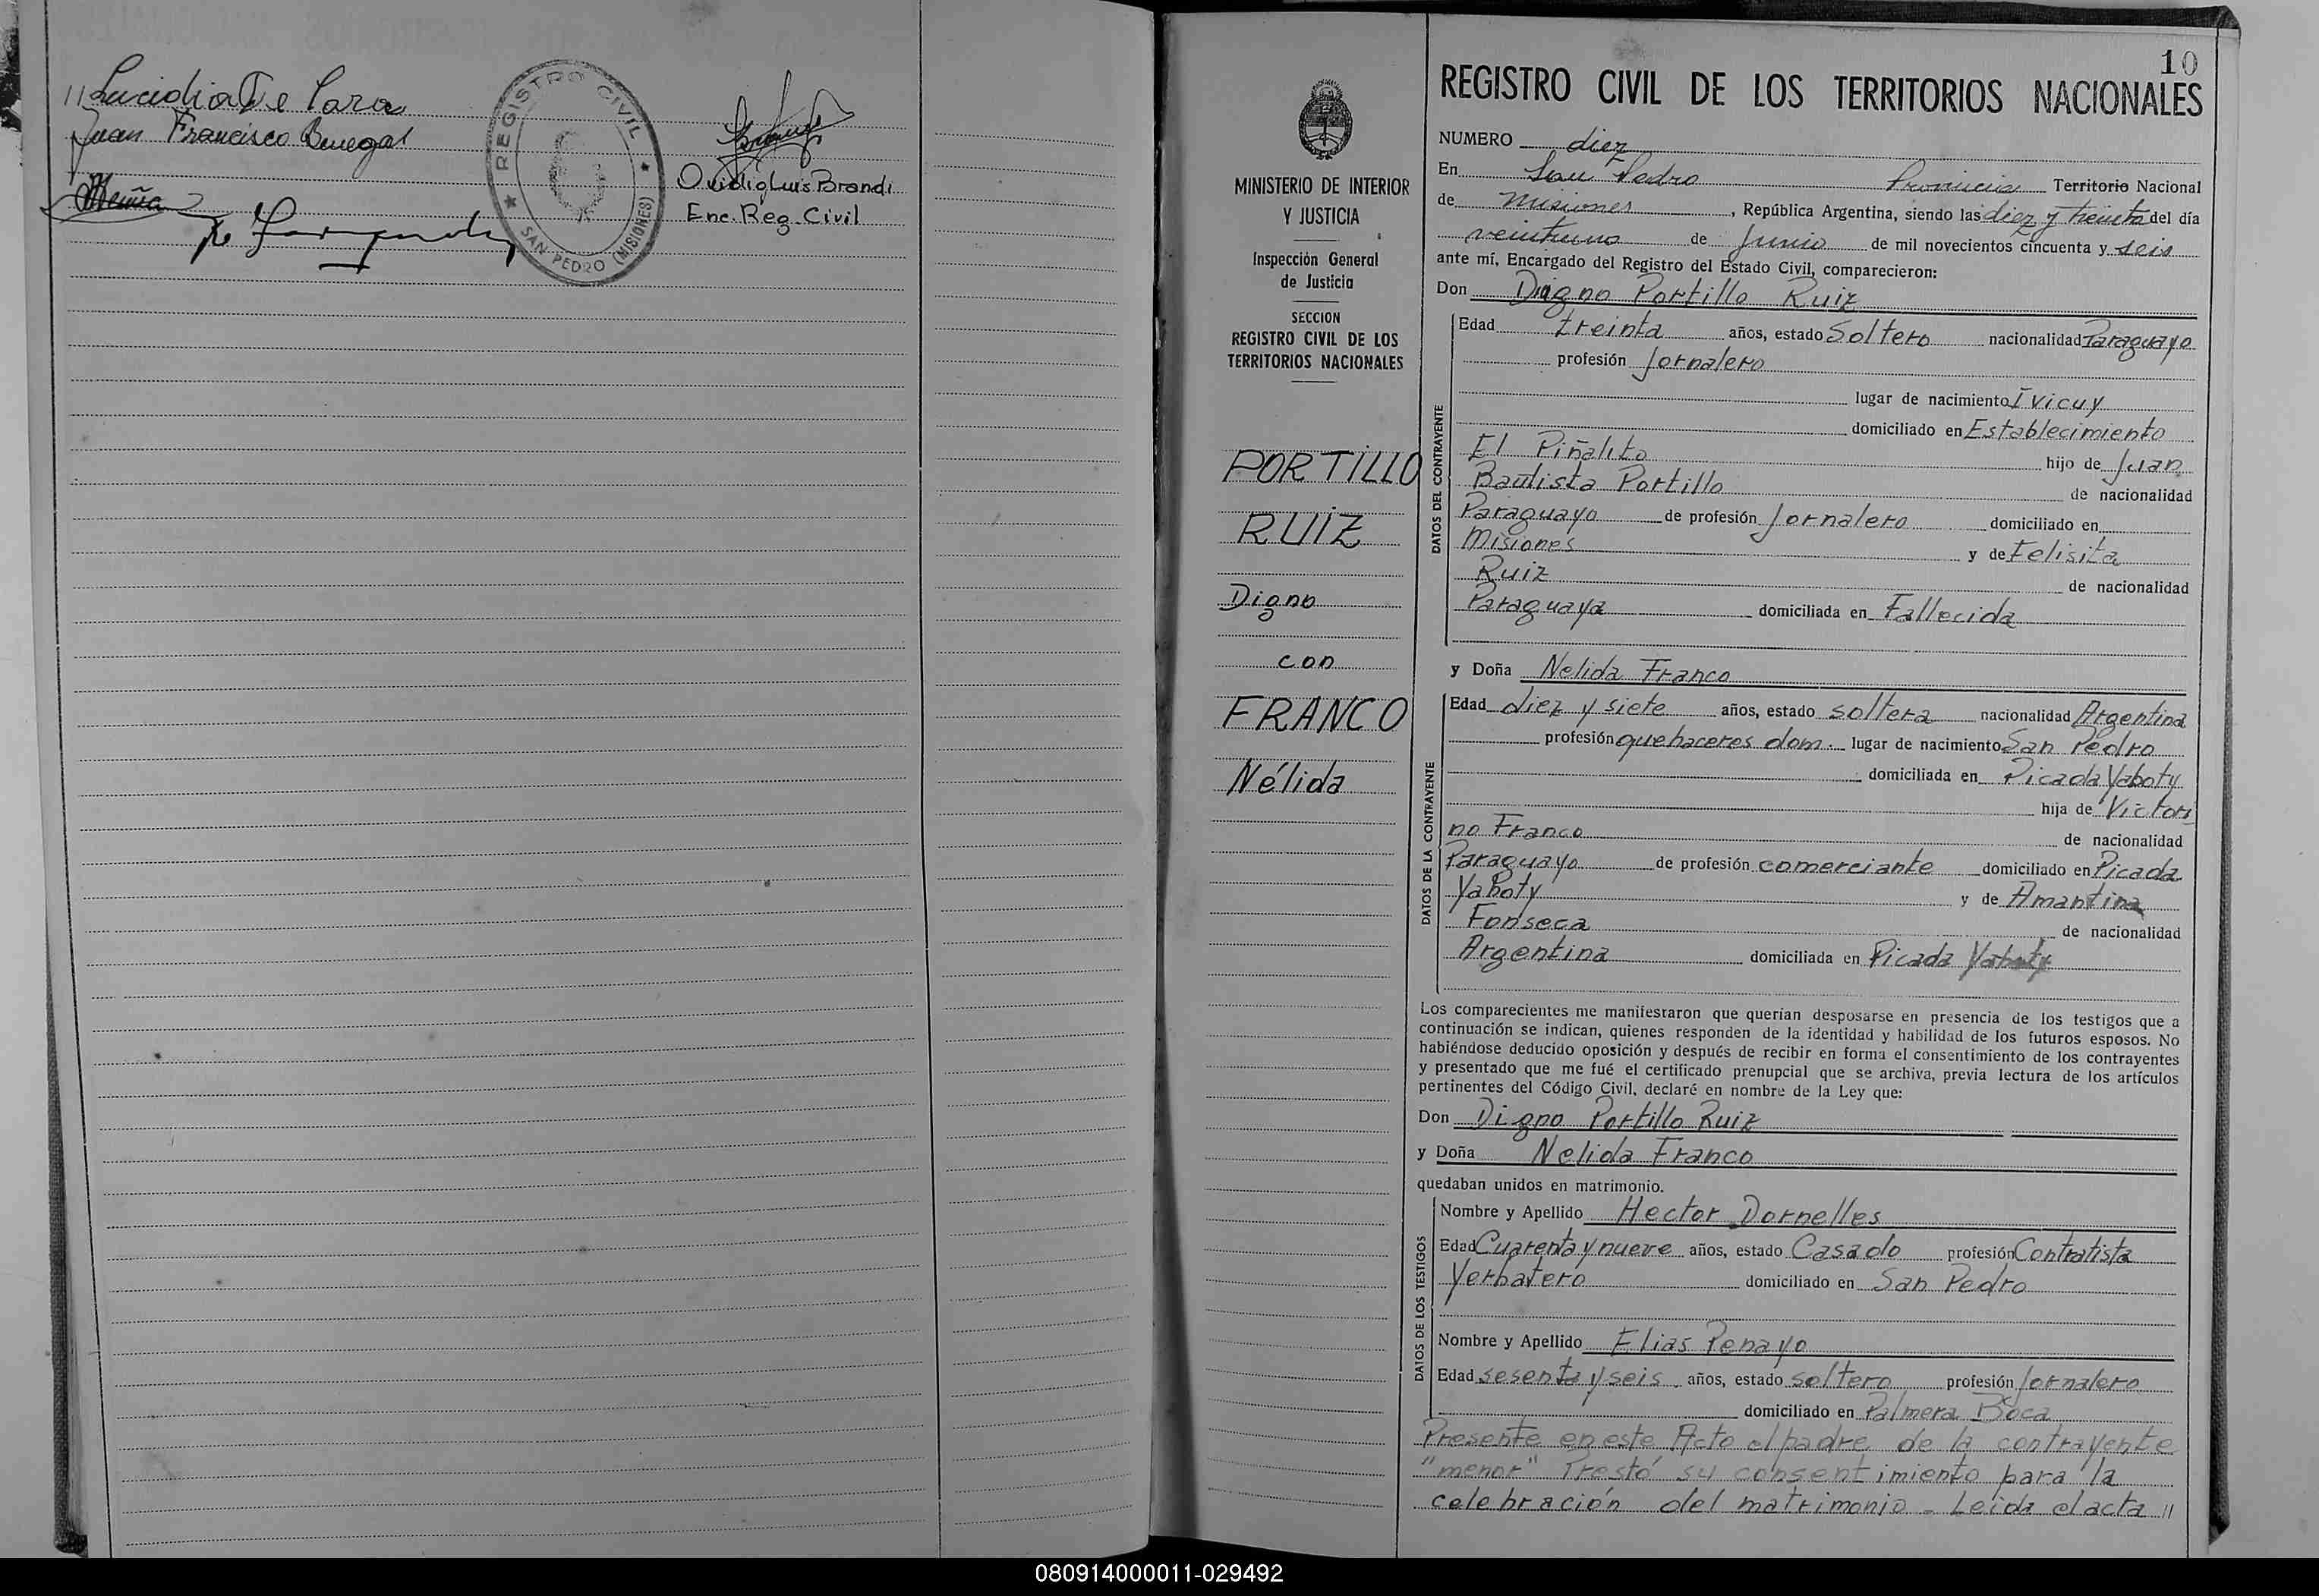 // Lucidia De Lara
Juan Francisco Benegas
REGISTRO CIVIL
SAN PEDRO (MISIONES)
Ovidio Luis Brondi
Enc. Reg. Civil
10
MINISTERIO DE INTERIOR
Y JUSTICIA
Inspección General
de Justicia
SECCION
REGISTRO CIVIL DE LOS
TERRITORIOS NACIONALES
PORTILLO
RUIZ
Digno
con
FRANCO
Nélida
REGISTRO CIVIL DE LOS TERRITORIOS NACIONALES
NUMERO diez
En San Pedro Provincia Territorio Nacional
de Misiones, República Argentina, siendo las diez y treinta del día
veintiuno de Junio de mil novecientos cincuenta y seis
ante mí, Encargado del Registro del Estado Civil, comparecieron:
Don Digno Portillo Ruiz
DATOS DEL CONTRAYENTE
Edad treinta años, estado Soltero nacionalidad Paraguayo
profesión Jornalero
lugar de nacimiento Ivicuy
domiciliado en Establecimiento
El Piñalito hijo de Juan
Bautista Portillo de nacionalidad
Paraguayo de profesión Jornalero domiciliado en
Misiones y de Felisita
Ruiz de nacionalidad
Paraguaya domiciliada en Fallecida
y Doña Nelida Franco
DATOS DE LA CONTRAYENTE
Edad diez y siete años, estado soltera nacionalidad Argentina
profesión quehaceres dom. lugar de nacimiento San Pedro
domiciliada en Picada Yaboty
hija de Victori
no Franco de nacionalidad
Paraguayo de profesión comerciante domiciliado en Picada
Yaboty y de Amantina
Fonseca de nacionalidad
Argentina domiciliada en Picada Yaboty
Los comparecientes me manifestaron que querían desposarse en presencia de los testigos que a
continuación se indican, quienes responden de la identidad y habilidad de los futuros esposos. No
habiéndose deducido oposición y después de recibir en forma el consentimiento de los contrayentes
y presentado que me fué el certificado prenupcial que se archiva, previa lectura de los artículos
pertinentes del Código Civil, declaré en nombre de la Ley que:
Don Digno Portillo Ruiz
y Doña Nelida Franco
quedaban unidos en matrimonio.
DATOS DE LOS TESTIGOS
Nombre y Apellido Hector Dornelles
Edad Cuarenta y nueve años, estado Casado profesión Contratista
Yerbatero domiciliado en San Pedro
Nombre y Apellido Elias Penayo
Edad sesenta y seis años, estado soltero profesión Jornalero
domiciliado en Palmera Boca
Presente en este Acto el padre de la contrayente
"menor" Prestó su consentimiento para la
celebración del matrimonio - Leida el acta //
080914000011-029492